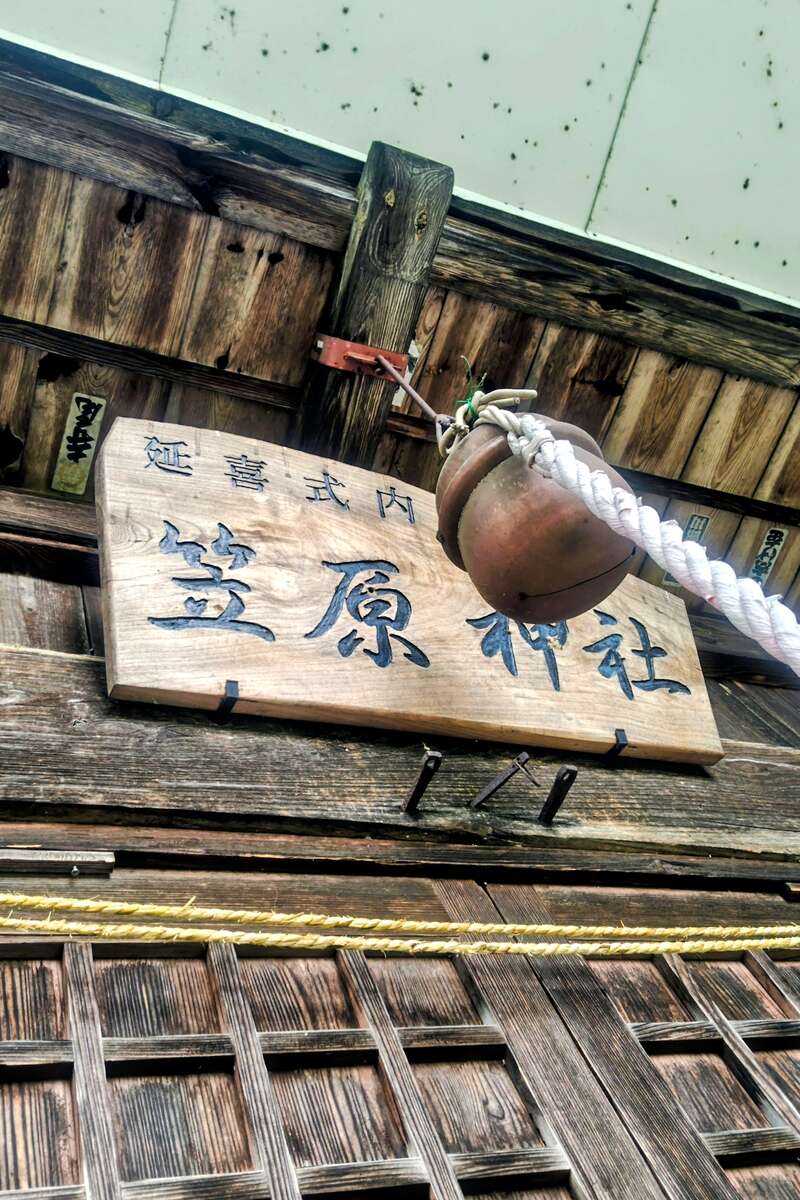 延喜式内
笠原神社